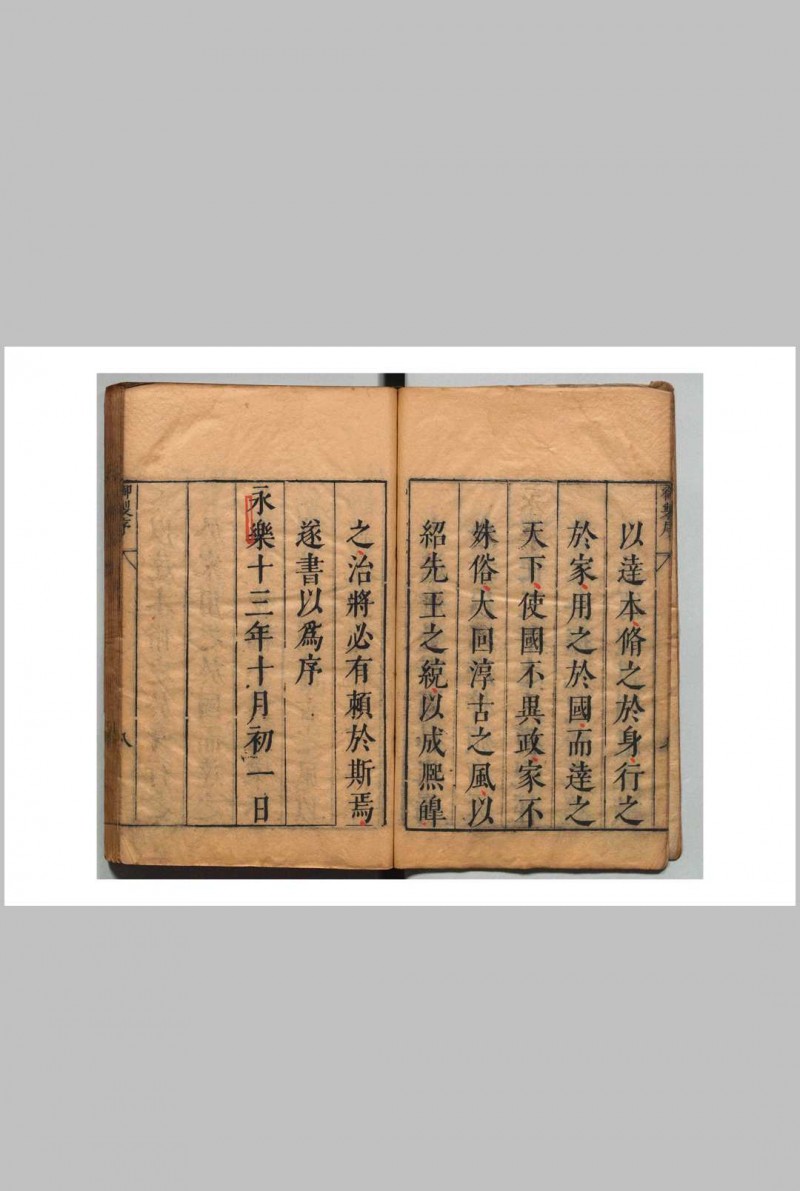 御製序
以達本脩之於身行之
於家用之於國而達之
天下使國不異政家不
殊俗大回淳古之風以
紹先王之統以成熈皥
之治將必有頼於斯焉
遂書以爲序
永樂十三年十月初一日
御製序
八